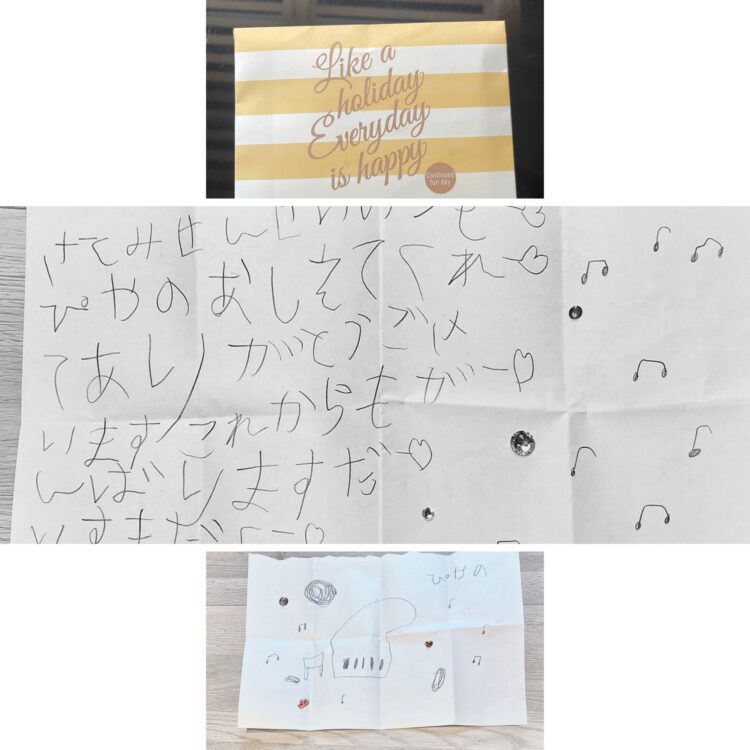 Like a
holiday
Everyday
is happy
Continued
fun day
せんせいいつも
ぴやのおしえてくれ
てありがとうご
いますこれからもが
んばりますだ
いすきだ
ぴやの